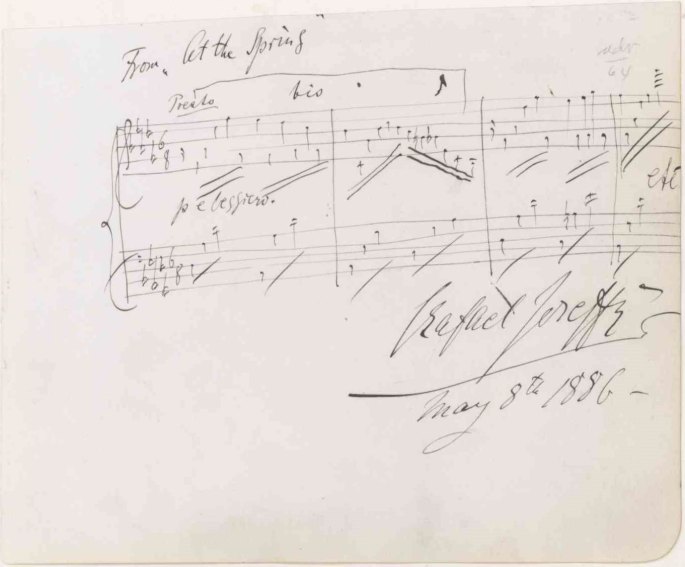 From "At the Spring"
adv
64
Presto
bis
6
8
p e leggiero.
etc
6
8
Rafael Joseffy
May 8th 1886 -